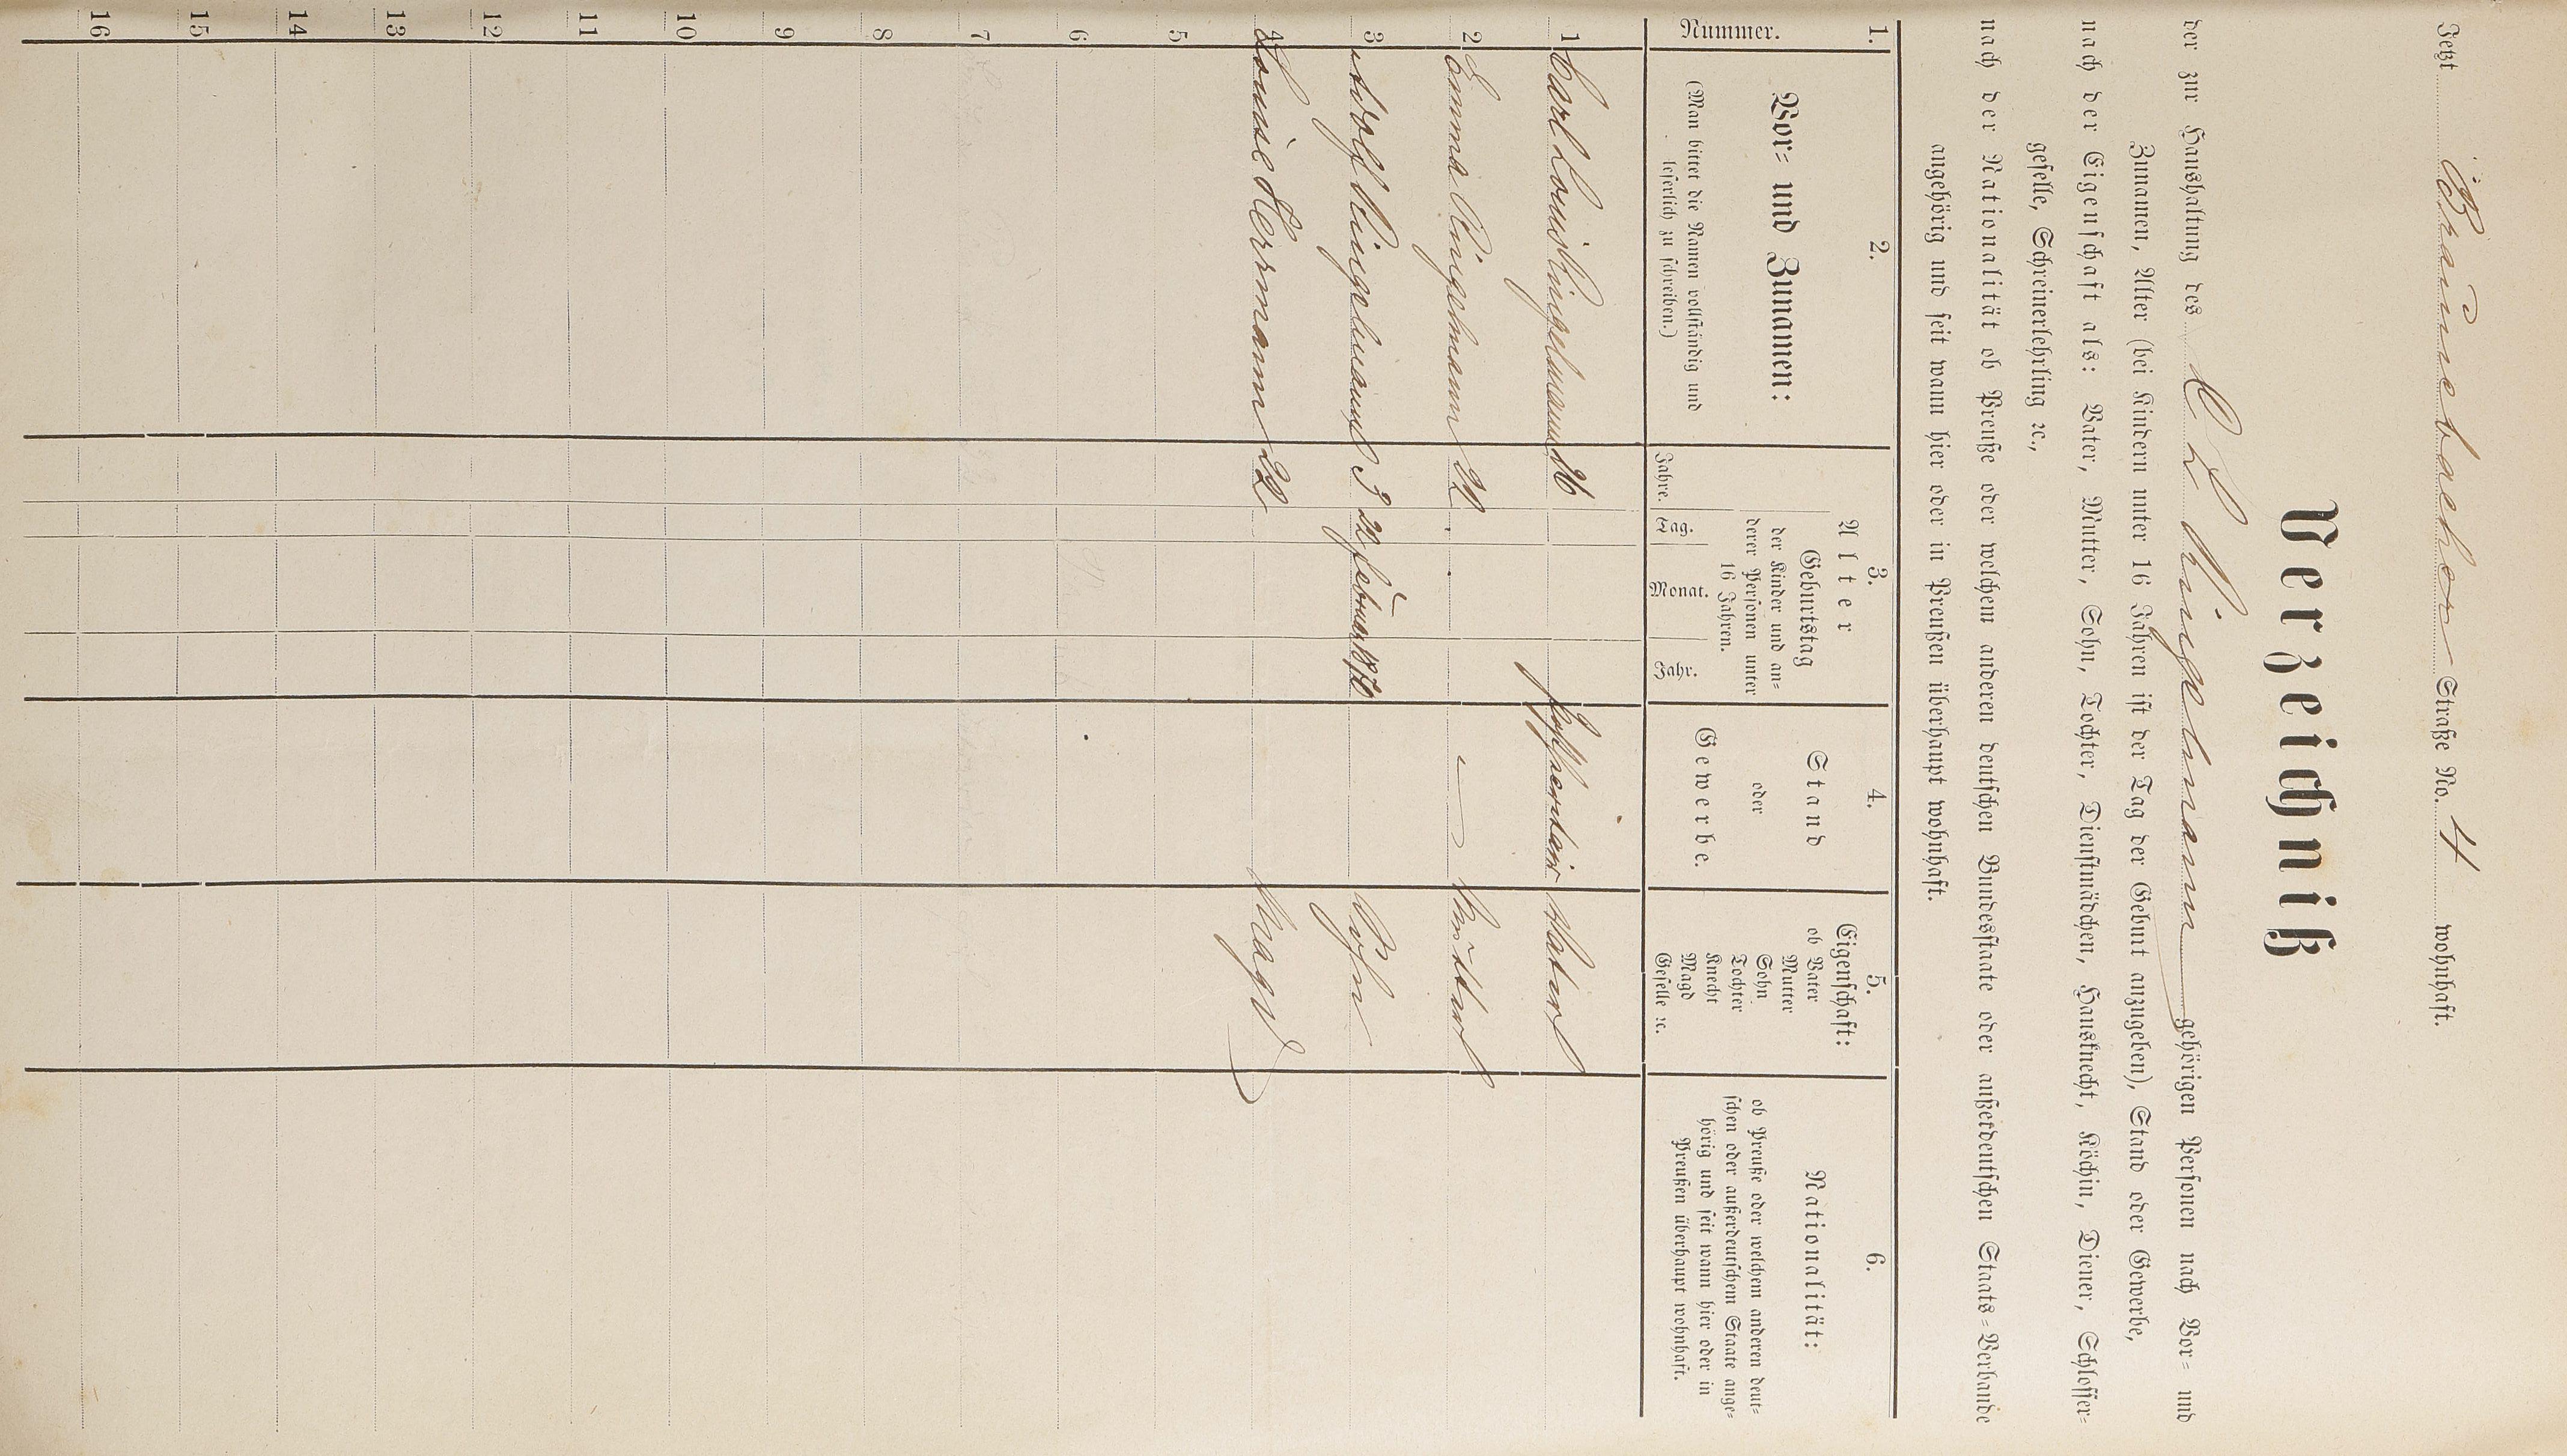 Jetzt Bräunebacher Straße No. 4 wohnhaft.
Verzeichniß
der zur Haushaltung des C L Ringelmann gehörigen Personen nach Vor- und
Zunamen, Alter (bei Kindern unter 16 Jahren ist der Tag der Geburt anzugeben), Stand oder Gewerbe,
nach der Eigenschaft als: Vater, Mutter, Sohn, Tochter, Dienstmädchen, Hausknecht, Köchin, Diener, Schlosser-
geselle, Schreinerlehrling ꝛc.,
nach der Nationalität ob Preuße oder welchem anderen deutschen Bundesstaate oder außerdeutschen Staats-Verbande
angehörig und seit wann hier oder in Preußen überhaupt wohnhaft.
1. 2. 3. 4. 5. 6.
Nummer.
Vor- und Zunamen:
(Man bittet die Namen vollständig und
leserlich zu schreiben.)
Alter
Geburtstag
der Kinder und an-
derer Personen unter
16 Jahren.
Jahre. Tag. Monat. Jahr.
Stand
oder
Gewerbe.
Eigenschaft:
ob Vater
Mutter
Sohn
Tochter
Knecht
Magd
Geselle ꝛc.
Nationalität:
ob Preuße oder welchem anderen deut-
schen oder außerdeutschem Staate ange-
hörig und seit wann hier oder in
Preußen überhaupt wohnhaft.
1 Carl Louis Ringelmann 26 Vater
2 Emma Ringelmann 22 Mutter
3 Adolf Ringelmann 3 22 Februar 1870 Sohn
4 Louise Herrmann 22 Magd
5
6
7
8
9
10
11
12
13
14
15
16